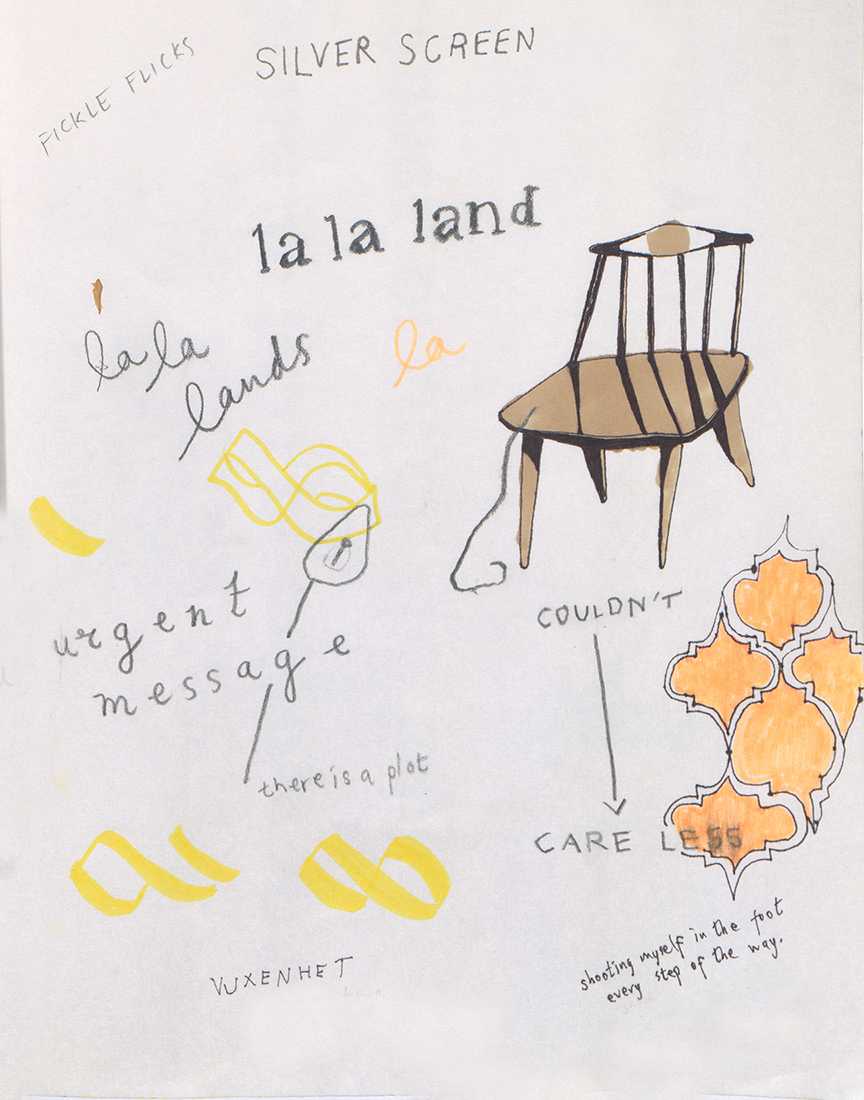 FICKLE FLICKS
SILVER SCREEN
la la land
la la
lands
la
urgent
message
there is a plot
COULDN'T
CARE LESS
VUXENHET
shooting myself in the foot
every step of the way.